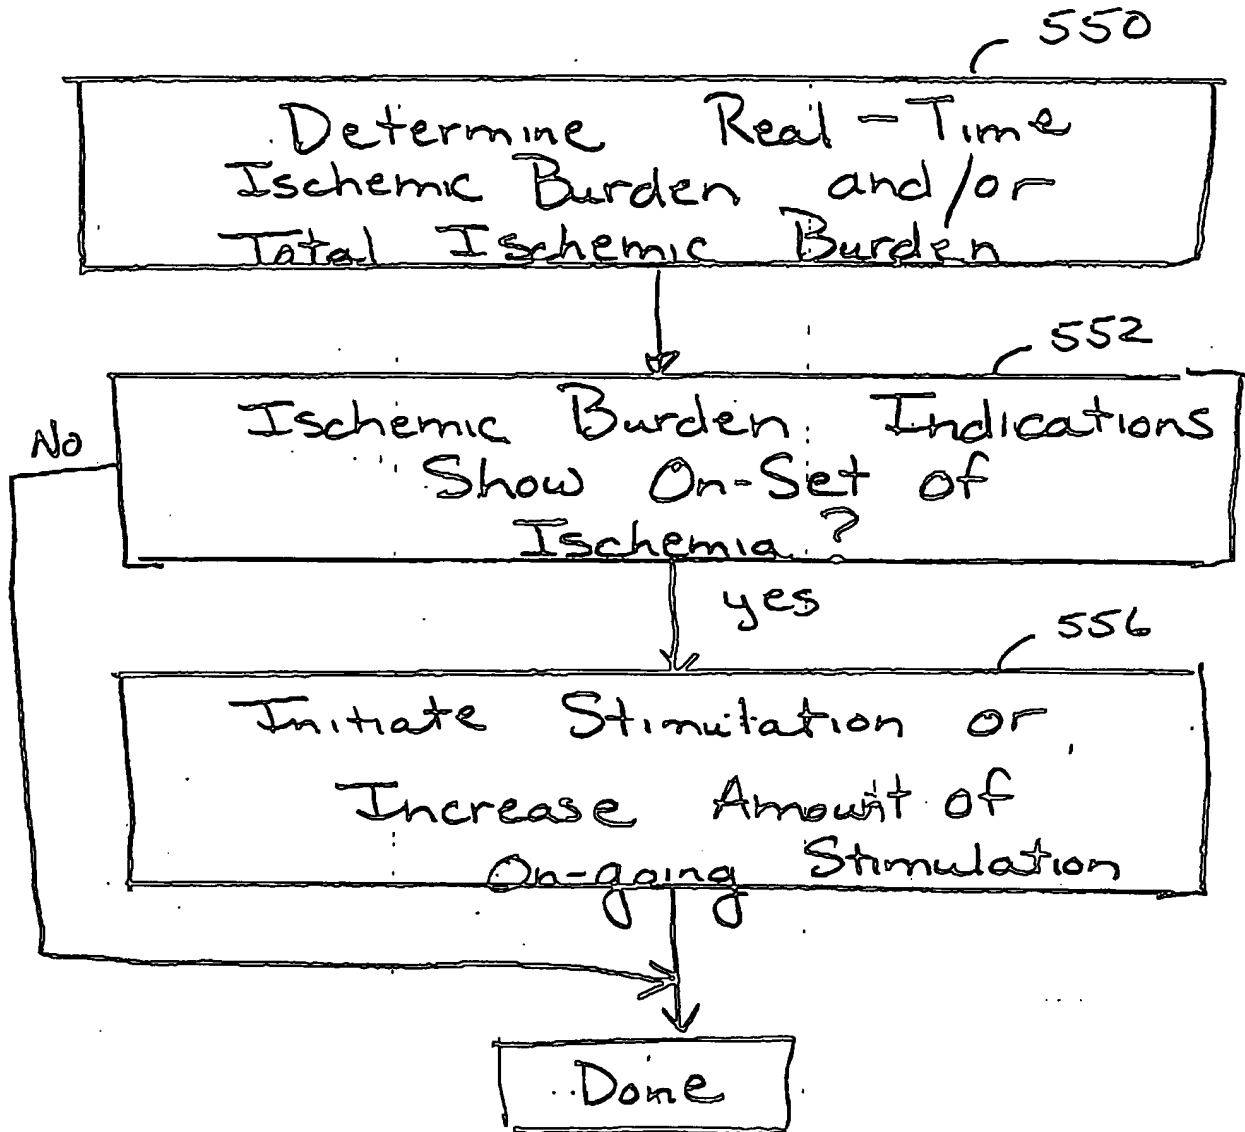 550
Determine Real-Time
Ischemic Burden and/or
Total Ischemic Burden
552
Ischemic Burden Indications
No
Show On-Set of
Ischemia?
yes
556
Initiate Stimulation or
Increase Amount of
On-going Stimulation
Done